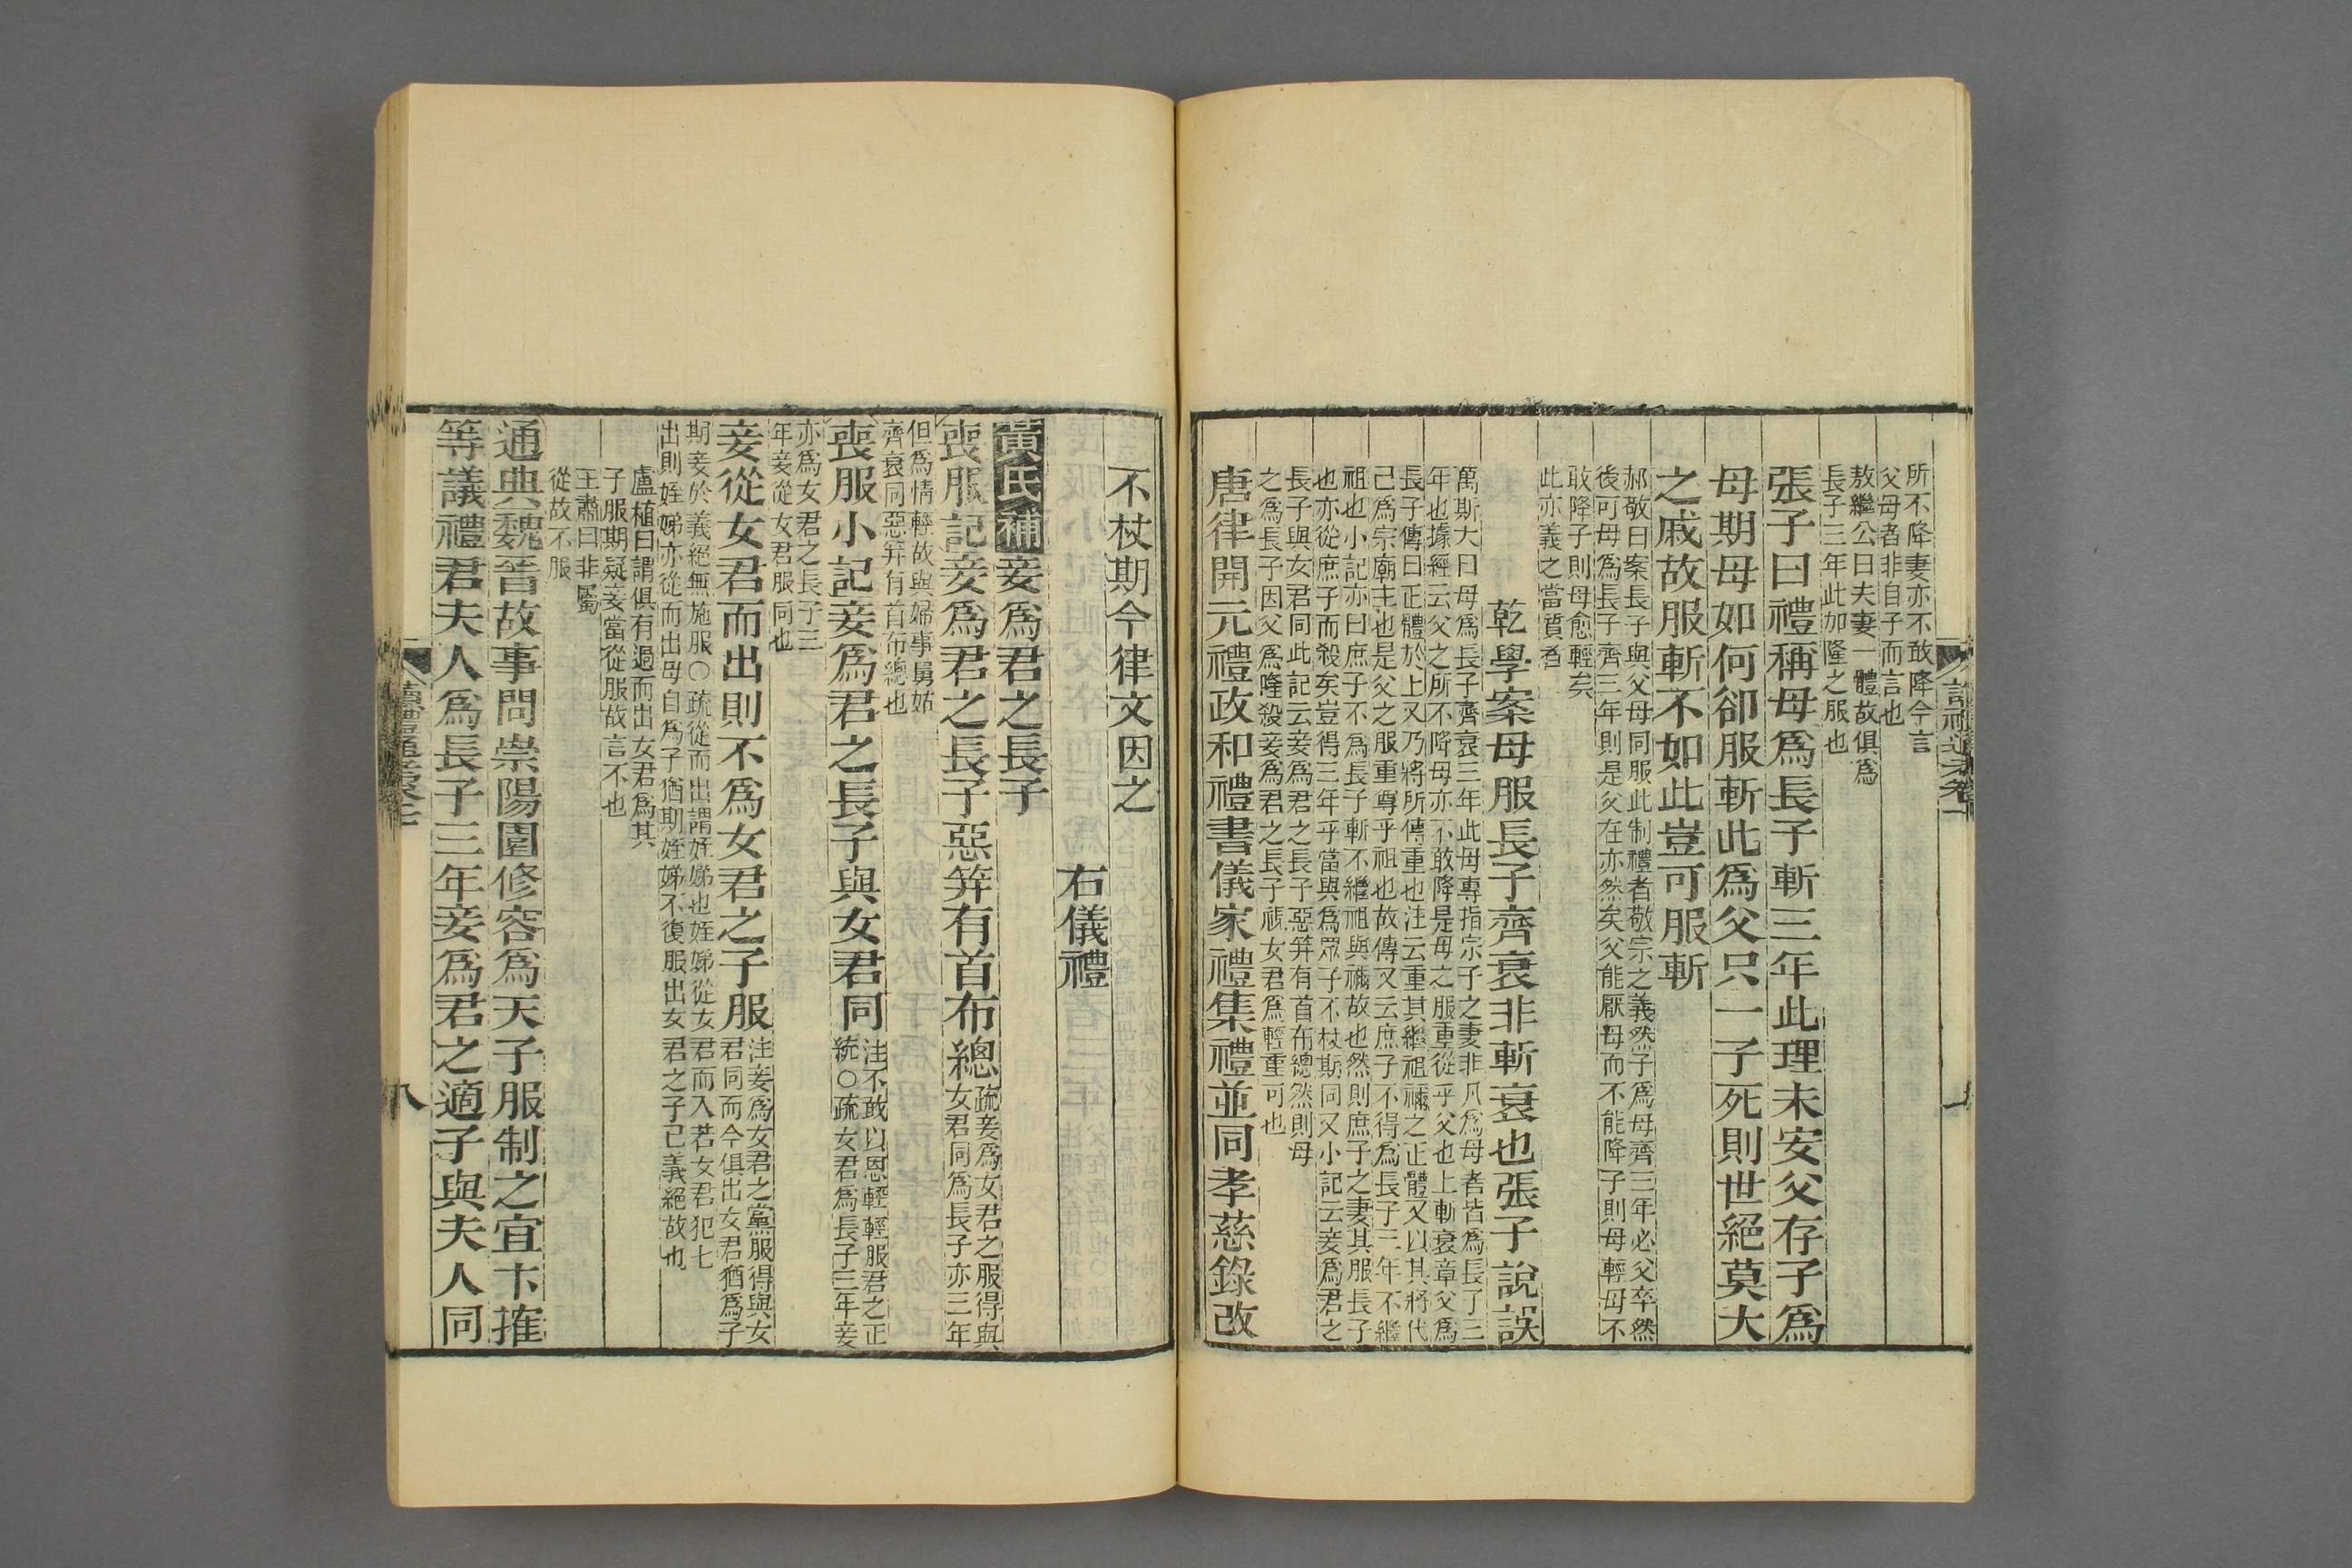 所不降妻亦不敢降今言
父母者非自子而言也
敖繼公曰夫妻一體故俱為
長子三年此加隆之服也
張子曰禮稱母爲長子斬三年此理未安父存子爲
母期母如何卻服斬此爲父只一子死則世絕莫大
之戚故服斬不如此豈可服斬
郝敬曰案長子與父母同服此制禮者敬宗之義然子爲母齊三年必父卒然
後可母爲長子齊三年則是父在亦然矣父能厭母而不能降子則母輕母不
敢降子則母愈輕矣
此亦義之當質者
乾學案母服長子齊衰非斬衰也張子說誤
萬斯大曰母爲長子齊衰三年此母專指宗子之妻非凡爲母者皆爲長子三
年也據經云父之所不降母亦不敢降是母之服重從乎父也上斬衰章父爲
長子傳曰正體於上又乃將所傳重也注云重其繼祖禰之正體又以其將代
己爲宗廟主也是父之服重尊乎祖也故傳又云庶子不得爲長子三年不繼
祖也小記亦曰庶子不爲長子斬不繼祖與禰故也然則庶子之妻其服長子
也亦從庶子而殺矣豈得三年乎當與爲眾子不杖期同又小記云妾爲君之
長子與女君同此記云妾爲君之長子惡笄有首布總然則母
之爲長子因父爲隆殺妾爲君之長子視女君爲輕重可也
唐律開元禮政和禮書儀家禮集禮並同孝慈錄改
不杖期今律文因之
右儀禮
黃氏補妾爲君之長子
喪服記妾爲君之長子惡笄有首布總
疏妾爲女君之服得與
女君同爲長子亦三年
但爲情輕故與婦事舅姑
齊衰同惡笄有首布總也
喪服小記妾爲君之長子與女君同
注不敢以恩輕輕服君之正
統○疏女君爲長子三年妾
亦爲女君之長子三
年妾從女君服同也
妾從女君而出則不爲女君之子服
注妾爲女君之黨服得與女
君同而今俱出女君猶爲子
期妾於義絕無施服○疏從而出謂姪娣也姪娣從女君而入若女君犯七
出則姪娣亦從而出母自爲子猶期姪娣不復服出女君之子已義絕故也
盧植曰謂俱有過而出女君爲其
子服期疑妾當從服故言不也
王肅曰非屬
從故不服
通典魏晉故事問崇陽園修容爲天子服制之宜卞搉
等議禮君夫人爲長子三年妾爲君之適子與夫人同
八